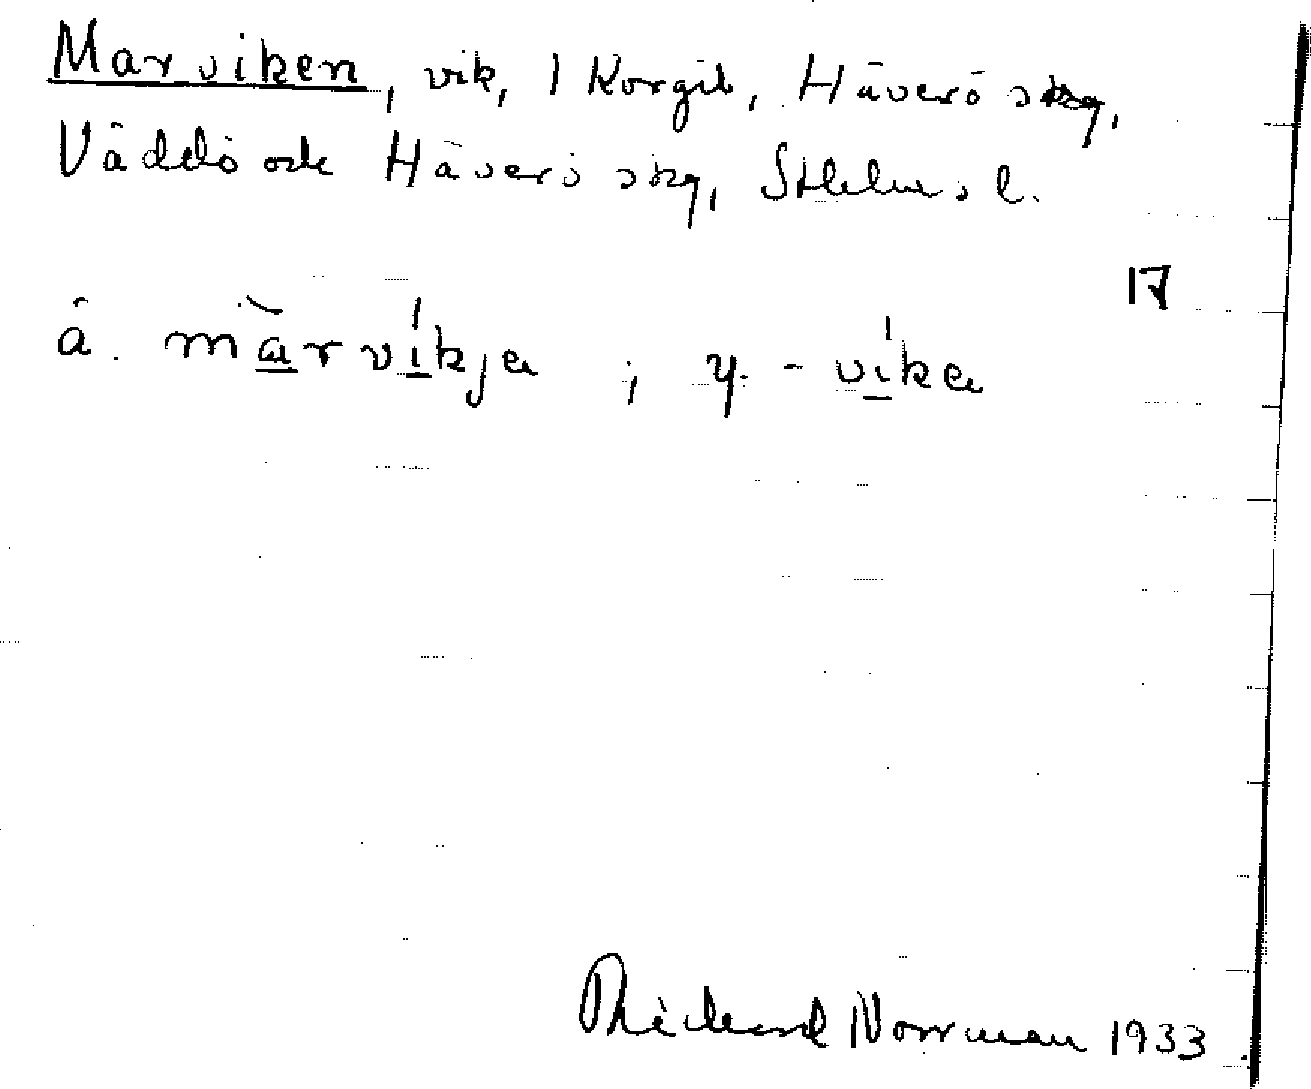 Marviken, vik, 1 Korgil, Häverö skg,
Väddö och Häverö skg, Sthlms l.
17
ä. màrvíkja ; y. -víka
Richard Norrman 1933